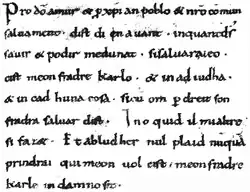 Pro dō amur & ꝑ xp̄ian poblo & nr̄o comun
saluament. dist di en auant. inquantdſ
sauir & podir medunat. sisaluaraieo.
cist meon fradre karlo. & in adiudha.
& in cad huna cosa. sicū om ꝑ dreit son
fradra saluar dist. Ino quid il mialtre
si fazet. Et abludher nul plaid nūquā
prindrai qui meon uol cist meon fradre
karle in damno sit.